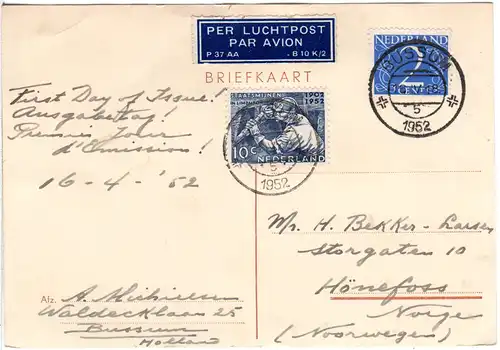 PER LUCHTPOST
PAR AVION
P 37 AA - B 10 K/2
BRIEFKAART
NEDERLAND
2
CENT
BUSSUM
5
1952
STAATSMIJNEN 1902
IN LIMBURG 1952
10 c NEDERLAND
5
1952
First Day of Issue!
Ausgabetag!
Premier Jour
d'Emission!
16-4-'52
Mr. H. Bekker-Larsen
Storgaten 10
Hönefoss
Norge
(Noorwegen)
Afz. A. Michielsen
Waldecklaan 25
Bussum
Holland